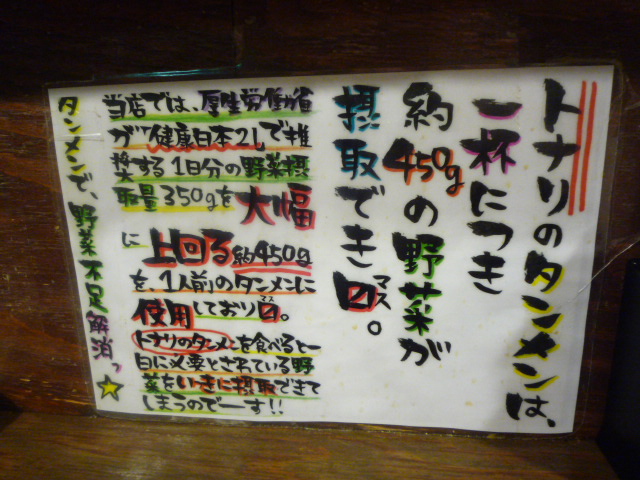 トナリのタンメンは、
一杯につき
約450gの野菜が
摂取でき〼。
当店では、厚生労働省
が"健康日本21"で推
奨する1日分の野菜摂
取量350gを大幅
に上回る約450g
を、1人前のタンメンに
使用しており〼。
トナリのタンメンを食べると一
日に必要とされている野
菜をいっきに摂取できて
しまうのでーす!!
タンメンで、野菜不足解消っ☆